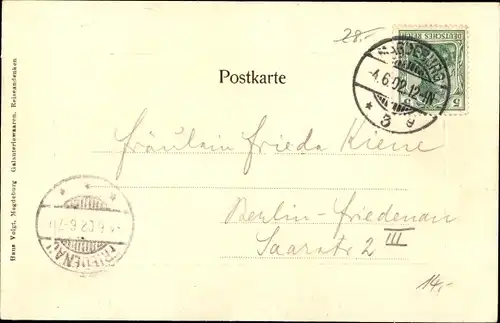 28.-
Postkarte
MAGDEBURG
4.6.02.12-1N
* 3 g
DEUTSCHES REICH
5
Fräulein Frieda Kiene
Berlin-Friedenau
Saarstr 2 III
14,-
FRIEDENAU
4.6.02.6-7N
Hans Voigt, Magdeburg Galanteriewaaren, Reiseandenken